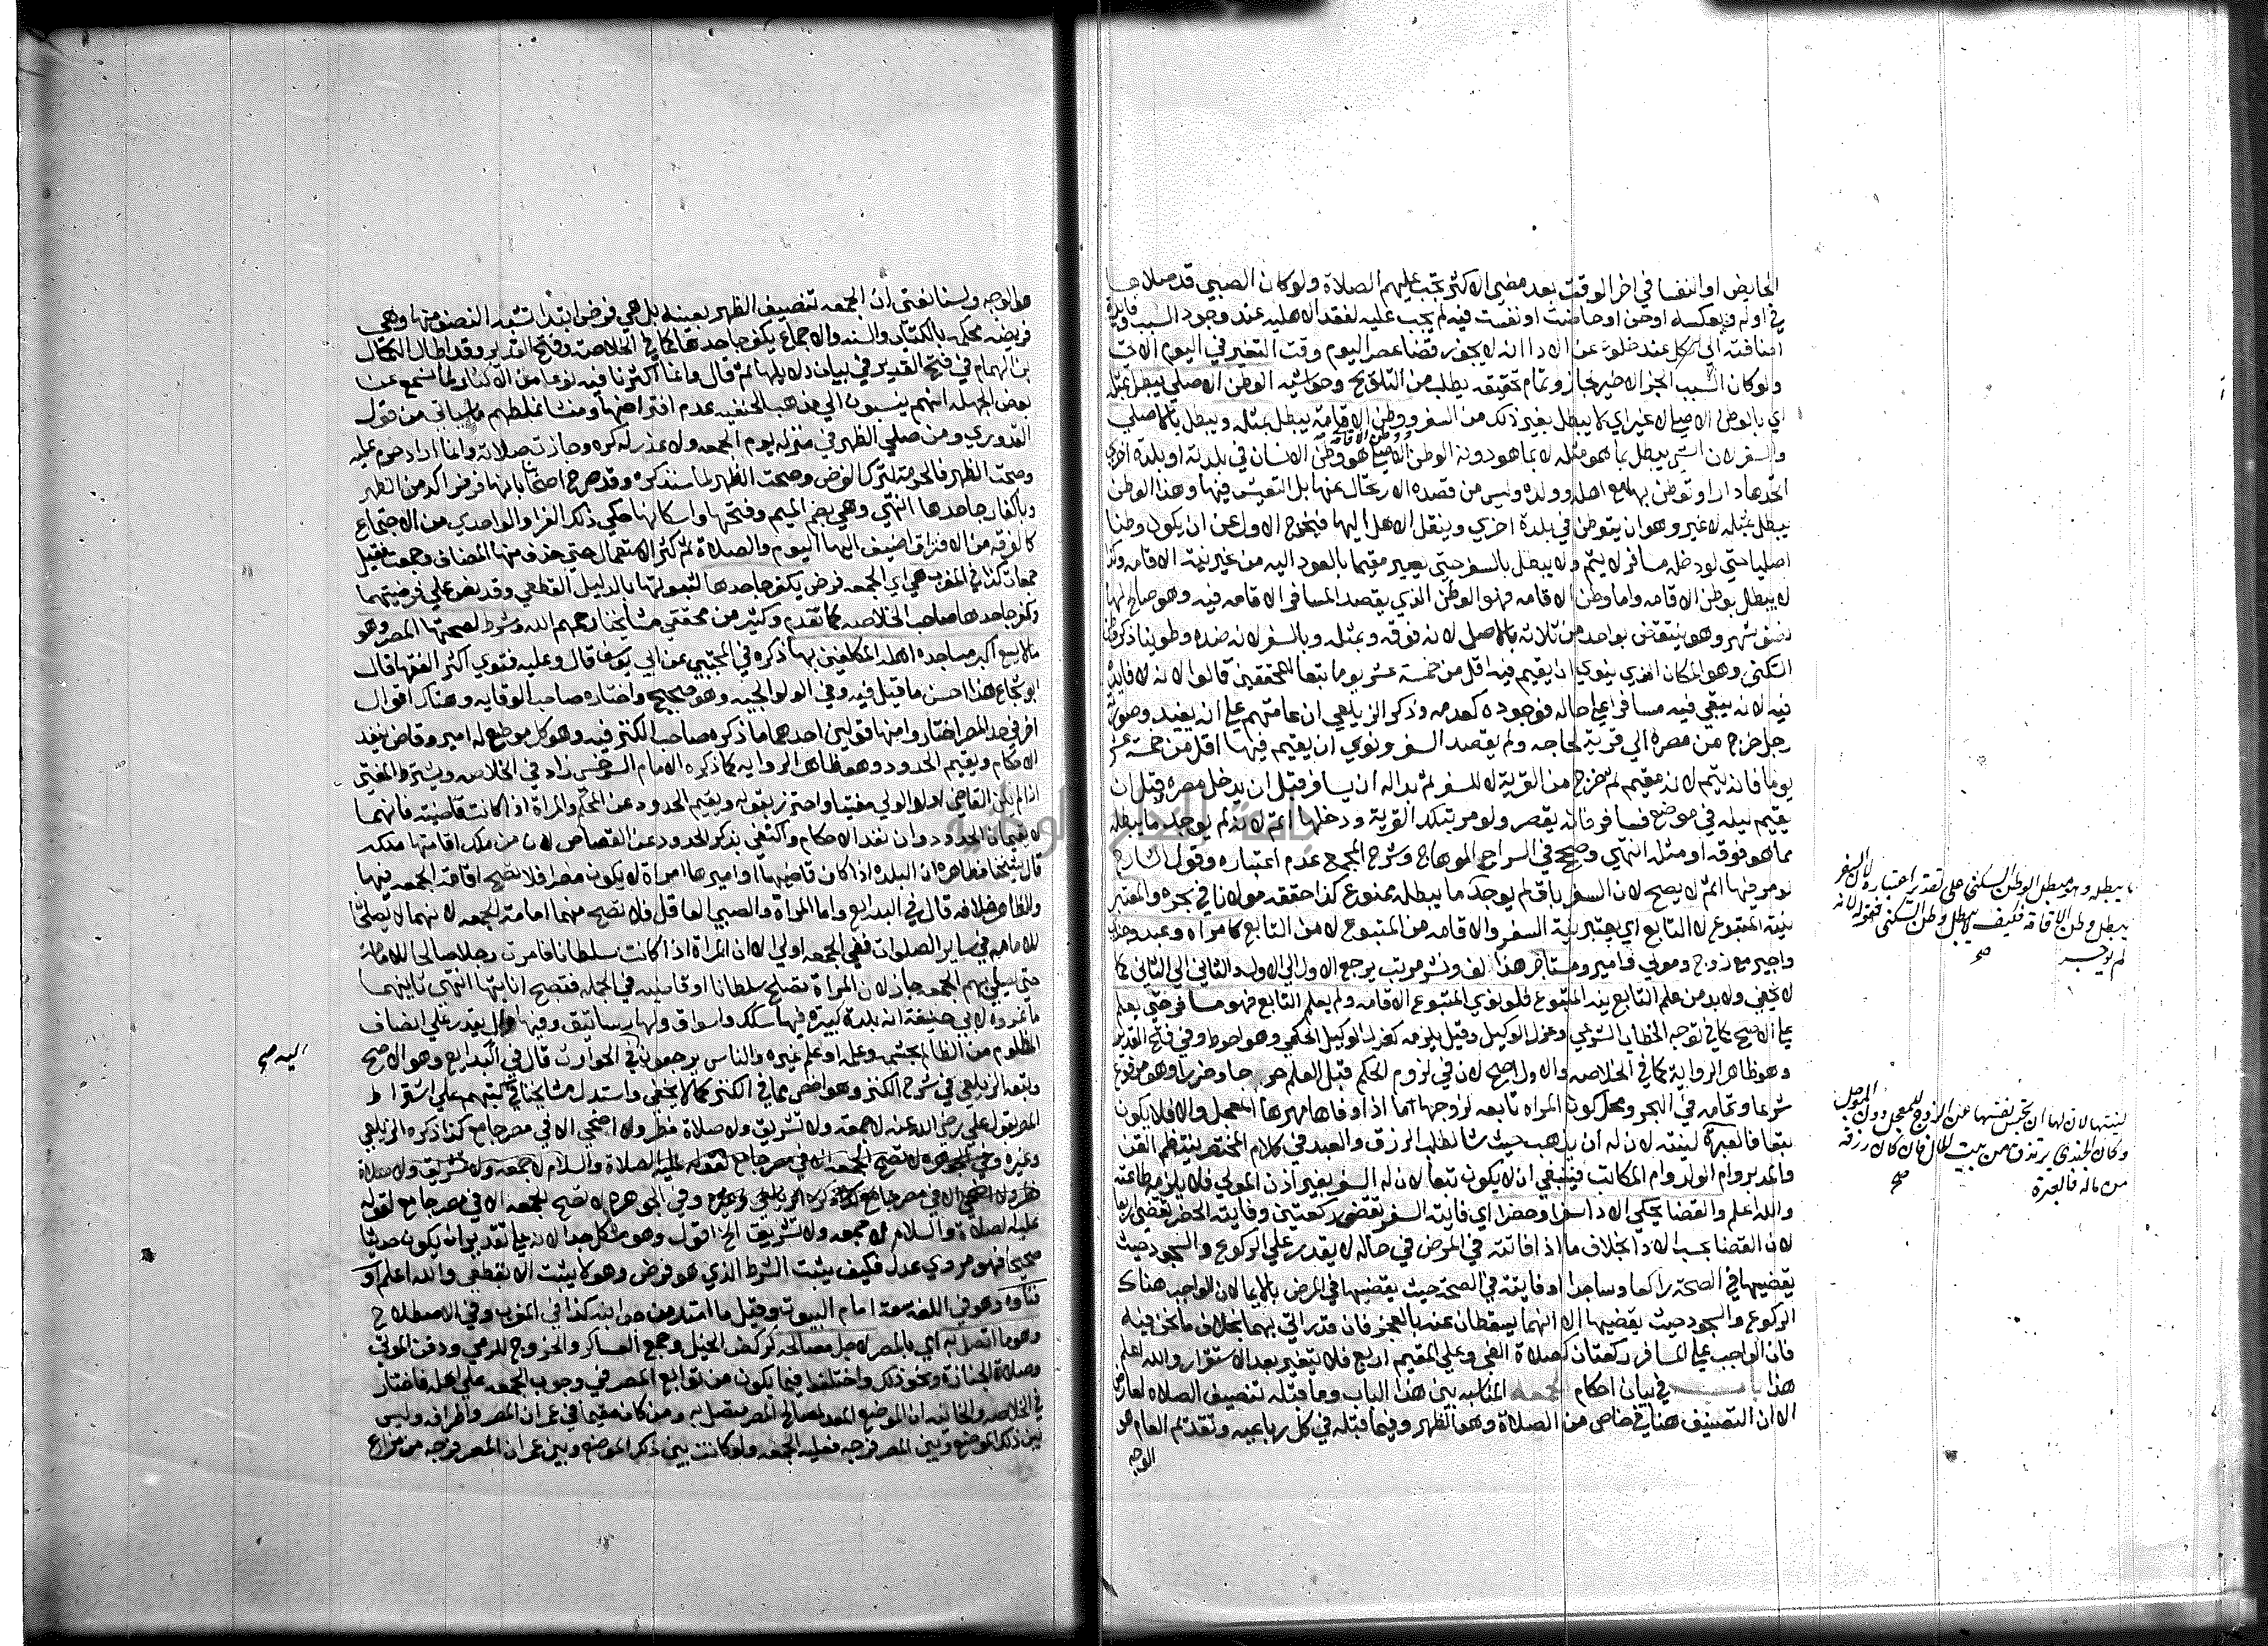 الحايض او النفسا في اخر الوقت بعد مضي الاكثر تجب عليهم الصلاة ولو كان الصبي قد صلاها
في اوله وبعكسه لو جن او حاضت او نفست فيه لم يجب عليه لفقد الاهليه عند وجود السبب وفايدة
اضافته الي الكل عند خلوه عن الادا انه لا يجوز قضا عصر اليوم وقت التغير في اليوم الاتي
ولو كان السبب الجز الاخير لجاز وتمام تحقيقه يطلب من التلويح وحواشيه الوطن الاصلي يبطل بمثله
اي بالوطن الاصلي لا غير اي لا يبطل بغير ذلك من السفر ووطن الاقامة يبطل بمثله ويبطل بالاصلي
والسفر لان الشي يبطل بما هو مثله لا بما هو دونه الوطن الاصلي هو وطن الانسان في بلدته او بلدة اخري
اتخذها دارا وتوطن بها مع اهله وولده وليس من قصده الارتحال عنها بل التعيش فيها وهذا الوطن
يبطل بمثله لا غير وهو ان يتوطن في بلدة اخري وينقل الاهل اليها فيخرج الاول عن ان يكون وطنا
اصليا حتي لو دخله مسافر لا يتم ولا يبطل بالسفر حتي يصير مقيما بالعود اليه من غير نية الاقامه وكذا
لا يبطل بوطن الاقامه واما وطن الاقامه فهو الوطن الذي يقصد المسافر الاقامه فيه وهو صالح لها
نصف شهر وهو ينتقض بواحد من ثلاثه بالاصلي لانه فوقه وبمثله وبالسفر لانه ضده وطوينا ذكر وطن
السكني وهو المكان الذي ينوي ان يقيم فيه اقل من خمسة عشر يوما تبعا للمحققين قالوا لانه لا فايدة
فيه لانه يبقي فيه مسافرا علي حاله فوجوده كعدمه وذكر الزيلعي ان عامتهم علي انه يفيد وصورته
رجل خرج من مصره الي قرية لحاجه ولم يقصد السفر ونوي ان يقيم فيها اقل من خمسة عشر
يوما فانه يتم لانه مقيم ثم خرج من القرية لا للسفر ثم بدا له ان يسافر قبل ان يدخل مصره وقبل ان
يقيم ليله في موضع فسافر فانه يقصر ولو مر بتلك القرية ودخلها اتم لانه لم يوجد ما يبطله
مما هو فوقه او مثله انتهي وصحح في السراج الوهاج وشرح المجمع عدم اعتباره وقول الشارح
لو مر فيها اتم لا يصح لان السفر باق لم يوجد ما يبطله ممنوع كذا حققه مولانا في بحره والمعتبر
نية المتبوع لا التابع اي يعتبر نية السفر والاقامه من المتبوع لا من التابع كامراه وعبد وجندي
واجير مع زوج ومولي وامير ومستاجر هذا لف ونشر مرتب يرجع الاول الي الاول والثاني الي الثاني كما
لا يخفي ولا بد من علم التابع بنية المتبوع فلو نوي المتبوع الاقامه ولم يعلم التابع فهو مسافر حتي يعلم
علي الاصح كما في توجه الخطاب الشرعي وعزل الوكيل وقيل يلزمه كعزل الوكيل الحكمي وهو احوط وفي فتح القدير
وهو ظاهر الرواية كما في الخلاصه والاول اصح لان في لزوم الحكم قبل العلم حرجا وضررا وهو مرفوع
شرعا وتمامه في البحر ومحل كون المراه تابعه لزوجها اذا اوفاها مهرها المعجل والا فلا يكون
تبعا فالعبرة لنيته لان له ان يذهب حيث شا لطلب الرزق والعبد في كلام المختصر ينتظم القن
والمدبر وام الولد واما المكاتب فينبغي ان لا يكون تبعا لان له السفر بغير اذن المولي فلا يلزمه طاعته
والله اعلم والقضا يحكي الادا سفرا وحضرا اي فايتة السفر تقضي ركعتين وفايتة الحضر تقضي اربعا
لان القضا بحسب الادا بخلاف ما اذا فاتته في المرض في حاله لا يقدر علي الركوع والسجود حيث
يقضيها في الصحة راكعا وساجدا او فايتة في الصحة حيث يقضيها في المرض بالايما لان الواجب هناك
الركوع والسجود حيث يقضيها الا انهما يسقطان عنه بالعجز فان قدر اتي بهما بخلاف ما نحن فيه
فان الواجب علي المسافر ركعتان كصلاة الفجر وعلي المقيم اربع فلا يتغير بعد الاستقرار والله اعلم
هذا باب في بيان احكام الجمعة المناسبه بين هذا الباب وما قبله تنصيف الصلاه لعارض
الا ان التنصيف هنا في خاص من الصلاة وهو الظهر وفيما قبله في كل رباعيه وتقديم العام هو
الوجه
ما يبطله وهو مبطل لوطن السكني علي تقدير اعتباره لان السفر
يبطل وطن الاقامة فكيف لا يبطل وطن السكني فقوله لانه
لم يوجد
صح
لنيتها لان لها ان تحبس نفسها عن الزوج للمعجل دون المؤجل
وكان الجندي يرتزق من بيت المال فان كان رزقه
من ماله فالعبرة
صح
هو الوجه ولسنا نعني ان الجمعه تنصيف الظهر بعينه بل هي فرض ابتدا نسبه النصف منها وهي
فريضه محكمه بالكتاب والسنه والاجماع يكفر جاحدها كما في الخلاصة وفتح القدير وقد اطال الكمال
بن الهمام في فتح القدير في بيان دلايلها ثم قال وانما اكثرنا فيه نوعا من الاكثار لما نسمع عن
بعض الجهله انهم ينسبون الي مذهب الحنفيه عدم افتراضها ومنشا غلطهم ما سياتي من قول
القدوري ومن صلي الظهر في منزله يوم الجمعه ولا عذر له كره وجازت صلاته وانما اراد حرم عليه
وصحت الظهر فالحرمة لترك الفرض وصحت الظهر لما سنذكره وقد صرح اصحابنا بانها فرض اكد من الظهر
وباكفار جاحدها انتهي وهي بضم الميم وفتحها واسكانها حكي ذلك الفرا والواحدي من الاجتماع
كالفرقه من الافتراق اضيف اليها اليوم والصلاة ثم كثر الاستعمال حتي حذف منها المضاف وجمعت فقيل
جمعات كذا في المغرب هي اي الجمعه فرض يكفر جاحدها لثبوتها بالدليل القطعي وقد نص علي فرضيتها
وكفر جاحدها صاحب الخلاصه كما تقدم وكثير من محققي مشايخنا رحمهم الله وشرط لصحتها المصر وهو
ما لا يسع اكبر مساجده اهله المكلفين بها ذكره في المجتبي عن ابي يوسف قال وعليه فتوي اكثر الفقها قال
ابو شجاع هذا احسن ما قيل فيه وفي الولوالجيه وهو صحيح واختاره صاحب الوقايه وهناك اقوال
اخر في حد المصر اختاروا منها قولين احدهما ما ذكره صاحب الكنز فيه وهو كل موضع له امير وقاض ينفذ
الاحكام ويقيم الحدود وهو ظاهر الروايه كما ذكره الامام السرخسي زاد في الخلاصه ويشترط المفتي
اذا لم يكن القاضي او الوالي مفتيا واحترز بقوله ويقيم الحدود عن المحكم والمراة اذا كانت قاضيه فانهما
لا يقيمان الحدود وان نفذا الاحكام واكتفي بذكر الحدود عن القصاص لان من ملك اقامتها ملكه
قال شيخنا فظاهره ان البلده اذا كان قاضيها او اميرها امراة لا يكون مصرا فلا تصح اقامة الجمعه فيها
والظاهر خلافه قال في البدايع واما المراة والصبي العاقل فلا تصح منهما اقامة الجمعه لانهما لا يصلحان
للامامه في ساير الصلوات ففي الجمعه اولي الا ان المراة اذا كانت سلطانا فامرت رجلا صالحا للامامة
حتي يصلي بهم الجمعه جاز لان المراة تصلح سلطانا او قاضيه في الجمله فتصح انابتها انتهي ثانيهما
ما عزوه لابي حنيفة انه بلدة كبيره فيها سكك واسواق ولها رساتيق وفيها وال يقدر علي انصاف
المظلوم من الظالم بحشمه وعلمه او علم غيره والناس يرجعون في الحوادث قال في البدايع وهو الاصح
وتبعه الزيلعي في شرح الكنز وهو اخص مما في الكنز كما لا يخفي واستدل مشايخنا في كتبهم علي اشتراط
المصر بقول علي رضي الله عنه لا جمعه ولا تشريق ولا صلاة فطر ولا اضحي الا في مصر جامع كذا ذكره الزيلعي
وغيره وفي الجوهره لا تصح الجمعه الا في مصر جامع لقوله عليه الصلاة والسلام لا جمعه ولا تشريق ولا صلاة
فطر ولا اضحي الا في مصر جامع كذا ذكره الزيلعي وغيره وفي الجوهره لا تصح الجمعه الا في مصر جامع لقوله
عليه الصلاة والسلام لا جمعه ولا تشريق الخ اقول وهو مشكل جدا لانه علي تقدير ان يكون حديثا
صحيحا فهو مروي عدل فكيف يثبت الشرط الذي هو فرض وهو لا يثبت الا بقطعي والله اعلم او
فناوه وهو في اللغه سعة امام البيوت وقيل ما امتد من جوانبه كذا في المغرب وفي الاصطلاح
وهو ما اتصل به اي بالمصر لاجل مصالحه كركض الخيل وجمع العساكر والخروج للرمي ودفن الموتي
وصلاة الجنازة ونحو ذلك واختلفوا فيما يكون من توابع المصر في وجوب الجمعه علي اهله فاختار
في الخلاصه والخانيه ان الموضع المعد لمصالح المصر متصل به ومن كان مقيما في عمران المصر واطرافه وليس
بين ذلك الموضع وبين المصر فرجه فعليه الجمعه ولو كانت بين ذلك الموضع وبين عمران المصر فرجه من مزارع
اليه صح